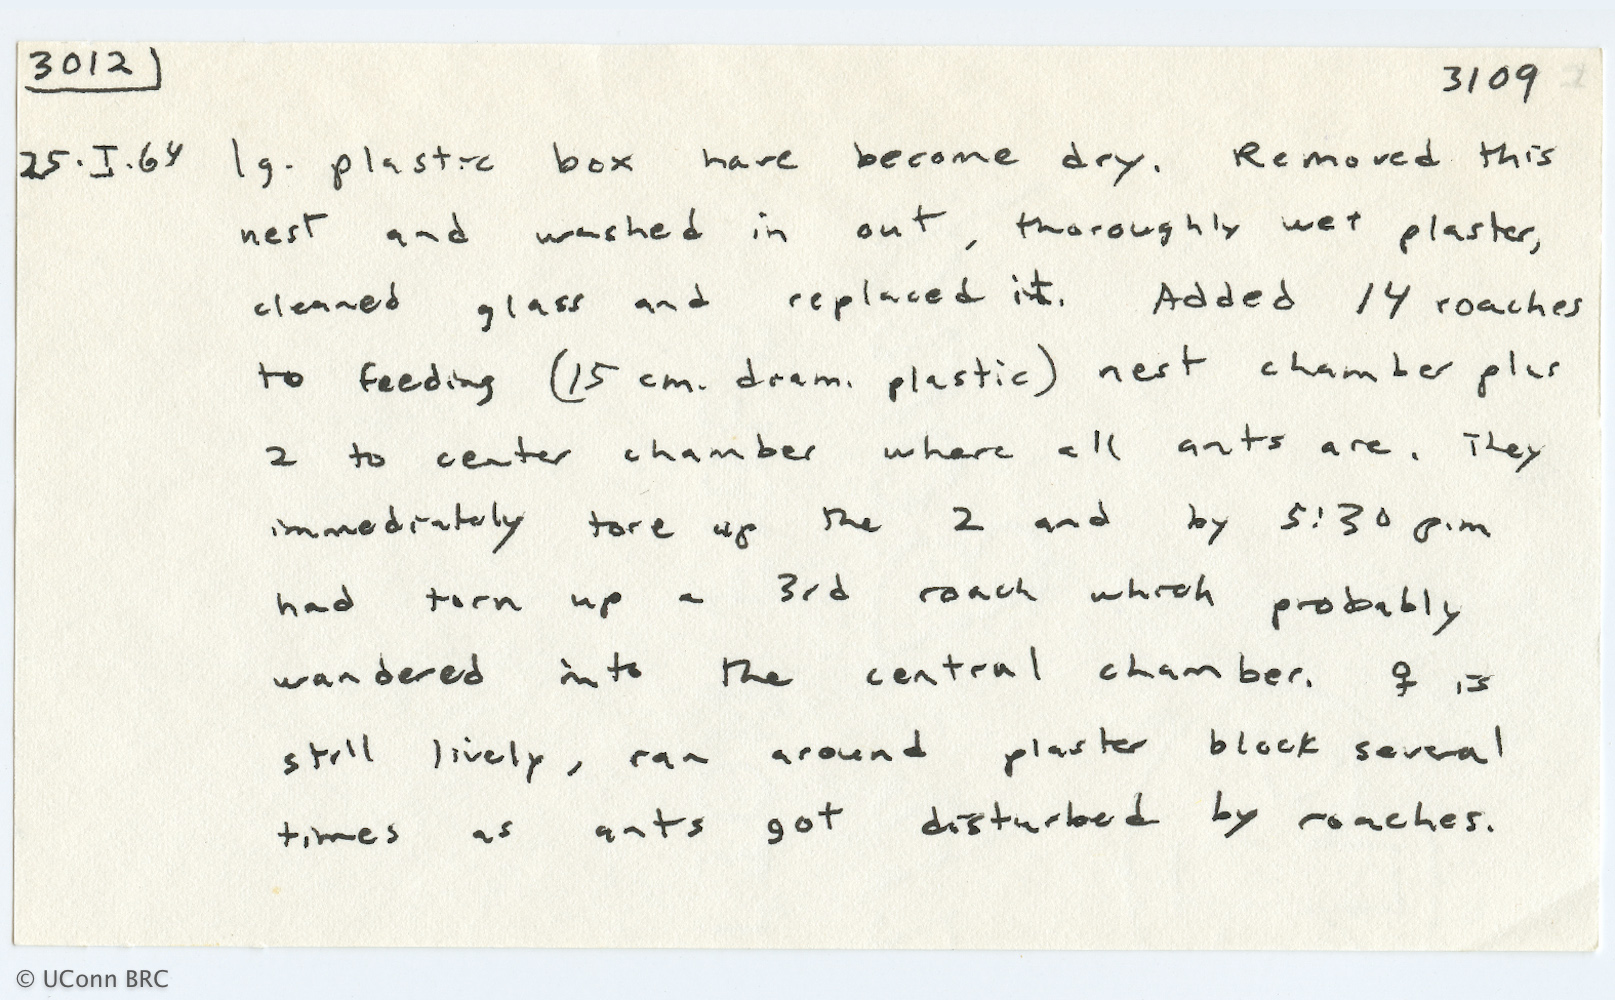 3012 3109
25.I.64 lg. plastic box have become dry. Removed this
nest and washed in out, thoroughly wet plaster,
cleaned glass and replaced it. Added 14 roaches
to feeding (15 cm. diam. plastic) nest chamber plus
2 to center chamber where all ants are. They
immediately tore up the 2 and by 5:30 p.m
had torn up a 3rd roach which probably
wandered into the central chamber. ♀ is
still lively, ran around plaster block several
times as ants got disturbed by roaches.
© UConn BRC